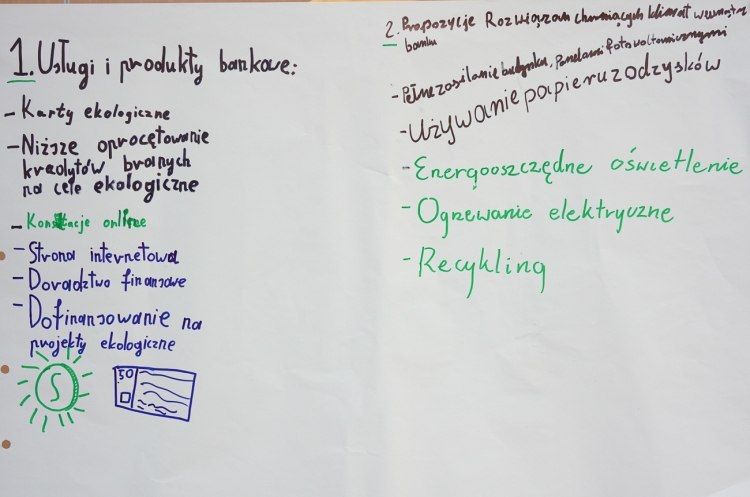 1. Usługi i produkty bankowe:
- Karty ekologiczne
- Niższe oprocętowanie
kredytów branych
na cele ekologiczne
- Konstacje online
- Strona internetowa
- Doradztwo finansowe
- Dofinansowanie na
projekty ekologiczne
S
50
2. Propozycje Rozwiązań chroniących klimat wewnątrz
banku
- Pełne zasilanie budynku, panelami fotowoltaicznymi
- Używanie papieru z odzysków
- Energooszczędne oświetlenie
- Ogrzewanie elektryczne
- Recykling